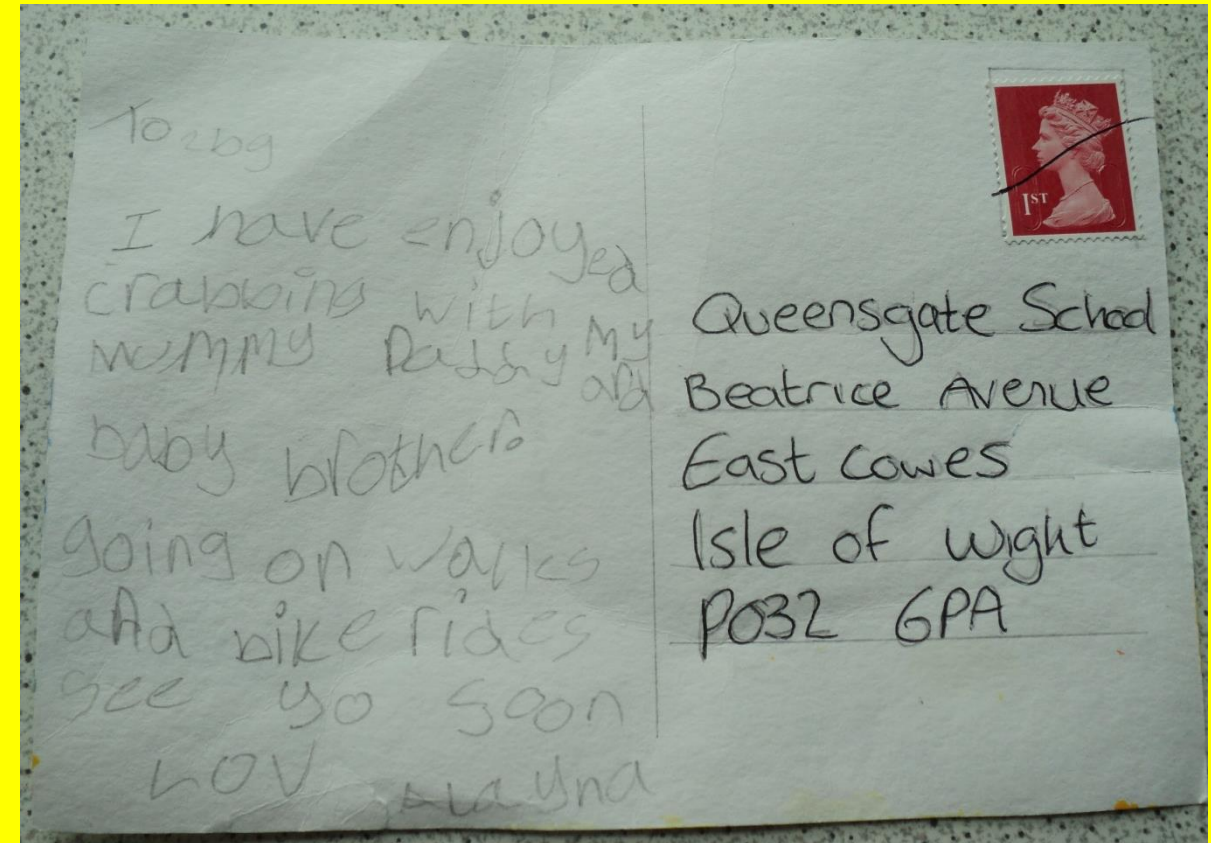 To 2bg
I have enjoyed
crabbing with
mummy Daddy my
and
baby brother.
going on walks
and bike rides
see yo soon
Lov Alayna
1ST
Queensgate School
Beatrice Avenue
East Cowes
Isle of Wight
PO32 6PA